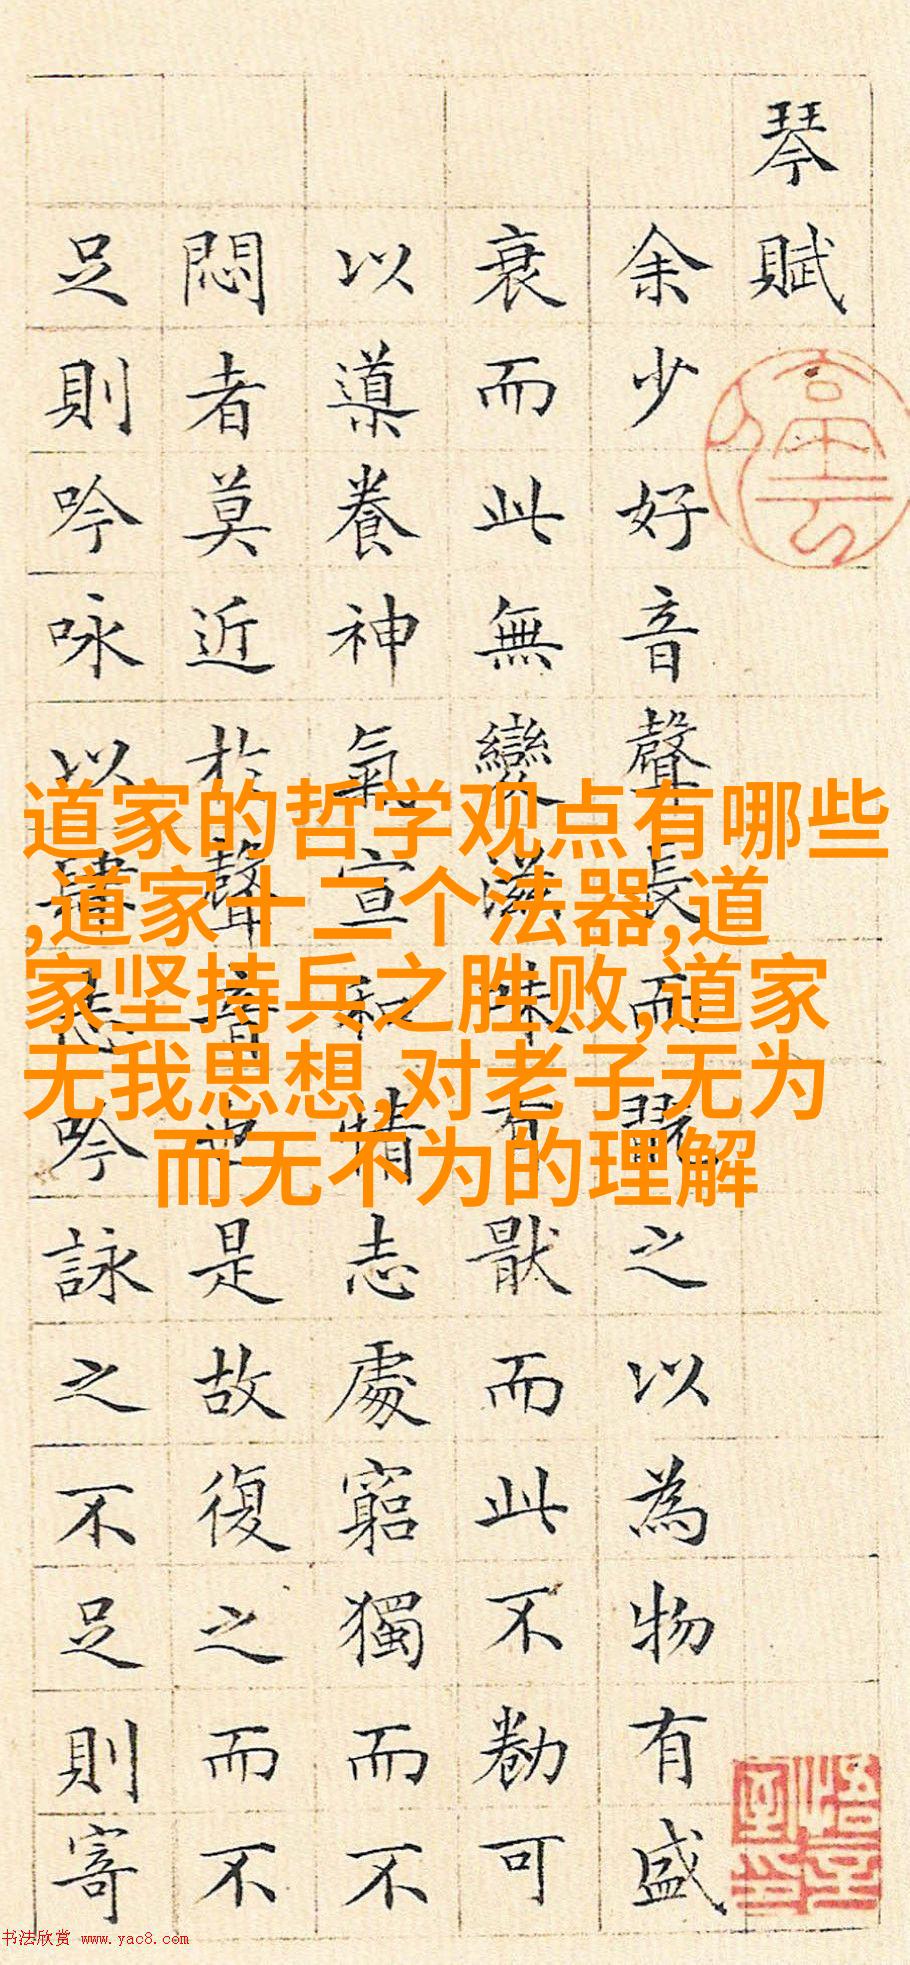 琴賦
余少好音聲長而翫之以為物有盛
衰而此無變滋味有猒而此不勌可
以導養神氣宣和情志處窮獨而不
悶者莫近於聲音也是故復之而不
足則吟咏以肆志吟詠之不足則寄
道家的哲学观点有哪些
,道家十二个法器,道
家坚持兵之胜败,道家
无我思想,对老子无为
而无不为的理解
书法欣赏 www.yac8.com